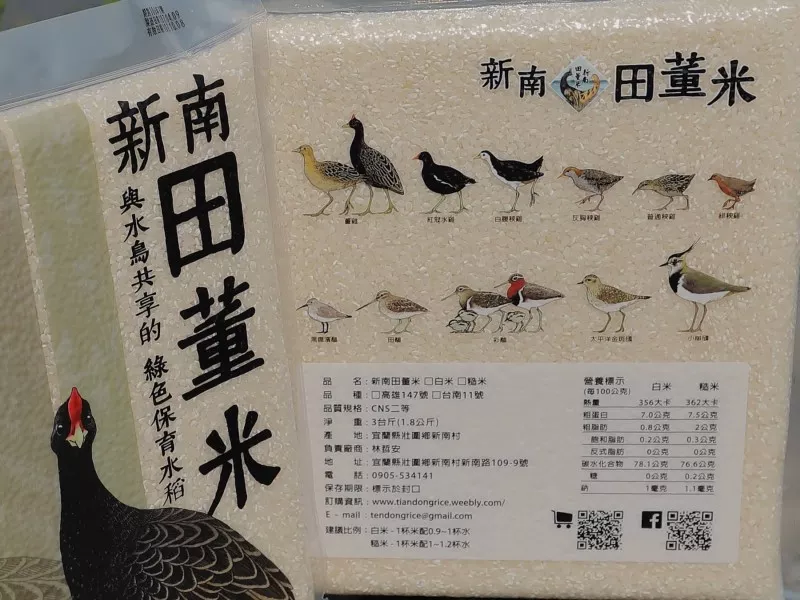 新南
田董米
與水鳥共享的 綠色保育水稻
新南 田董米
董雞
紅冠水雞
白腹秧雞
灰胸秧雞
普通秧雞
緋秧雞
黑腹濱鷸
田鷸
彩鷸
太平洋金斑鴴
小辮鴴
品 名：新南田董米 □白米 □糙米
品 種：□高雄147號 □台南11號
品質規格：CNS二等
淨 重：3台斤(1.8公斤)
產 地：宜蘭縣壯圍鄉新南村
負責廠商：林哲安
地 址：宜蘭縣壯圍鄉新南村新南路109-9號
電 話：0905-534141
保存期限：標示於封口
訂購資訊：www.tiandongrice.weebly.com/
E - mail：tendongrice@gmail.com
建議比例：白米 - 1杯米配0.9~1杯水
糙米 - 1杯米配1~1.2杯水
營養標示
(每100公克) 白米 糙米
熱量 356大卡 362大卡
粗蛋白 7.0公克 7.5公克
粗脂肪 0.8公克 2公克
飽和脂肪 0.2公克 0.3公克
反式脂肪 0公克 0公克
碳水化合物 78.1公克 76.6公克
糖 0公克 0.2公克
鈉 1毫克 1.1毫克